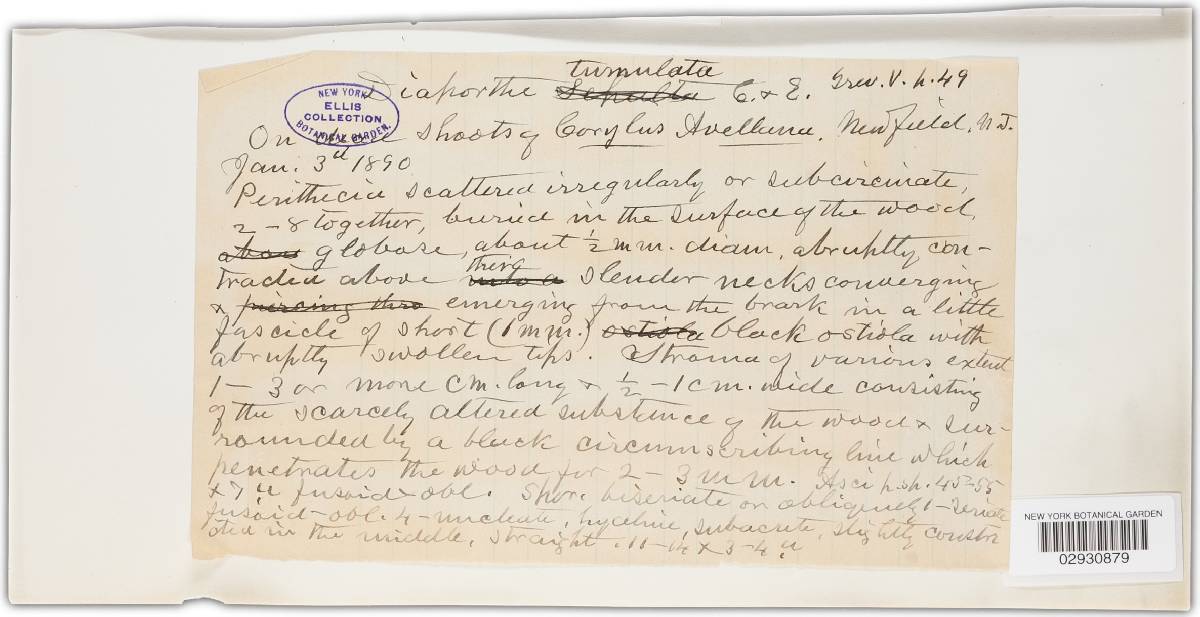 Diaporthe tumulata C. & E. Grev. V. p. 49
NEW YORK
ELLIS
COLLECTION
BOTANICAL GARDEN.
On shoots of Corylus Avellana, Newfield, N.J.
Jan. 3d 1890
Perithecia scattered irregularly or subcircinate,
2-8 together, buried in the surface of the wood,
abou globose, about ½ mm. diam, abruptly con-
tracted above into a slender necks converging
& piercing thro emerging from the bark in a little
fascicle of short (1 mm.) ostiola black ostiola with
abruptly swollen tips. Stroma of various extent
1-3 or more cm. long & ½-1 cm. wide consisting
of the scarcely altered substance of the wood & sur-
rounded by a black circumscribing line which
penetrates the wood for 2-3 mm. Asci p. sp. 45-55
x 7 u fusoid-obl. Spor. biseriate or obliquely 1-seriate
fusoid-obl. 4-nucleate, hyaline, subacute, slightly constri
cted in the middle, straight. 11-14 x 3-4 u
NEW YORK BOTANICAL GARDEN
02930879